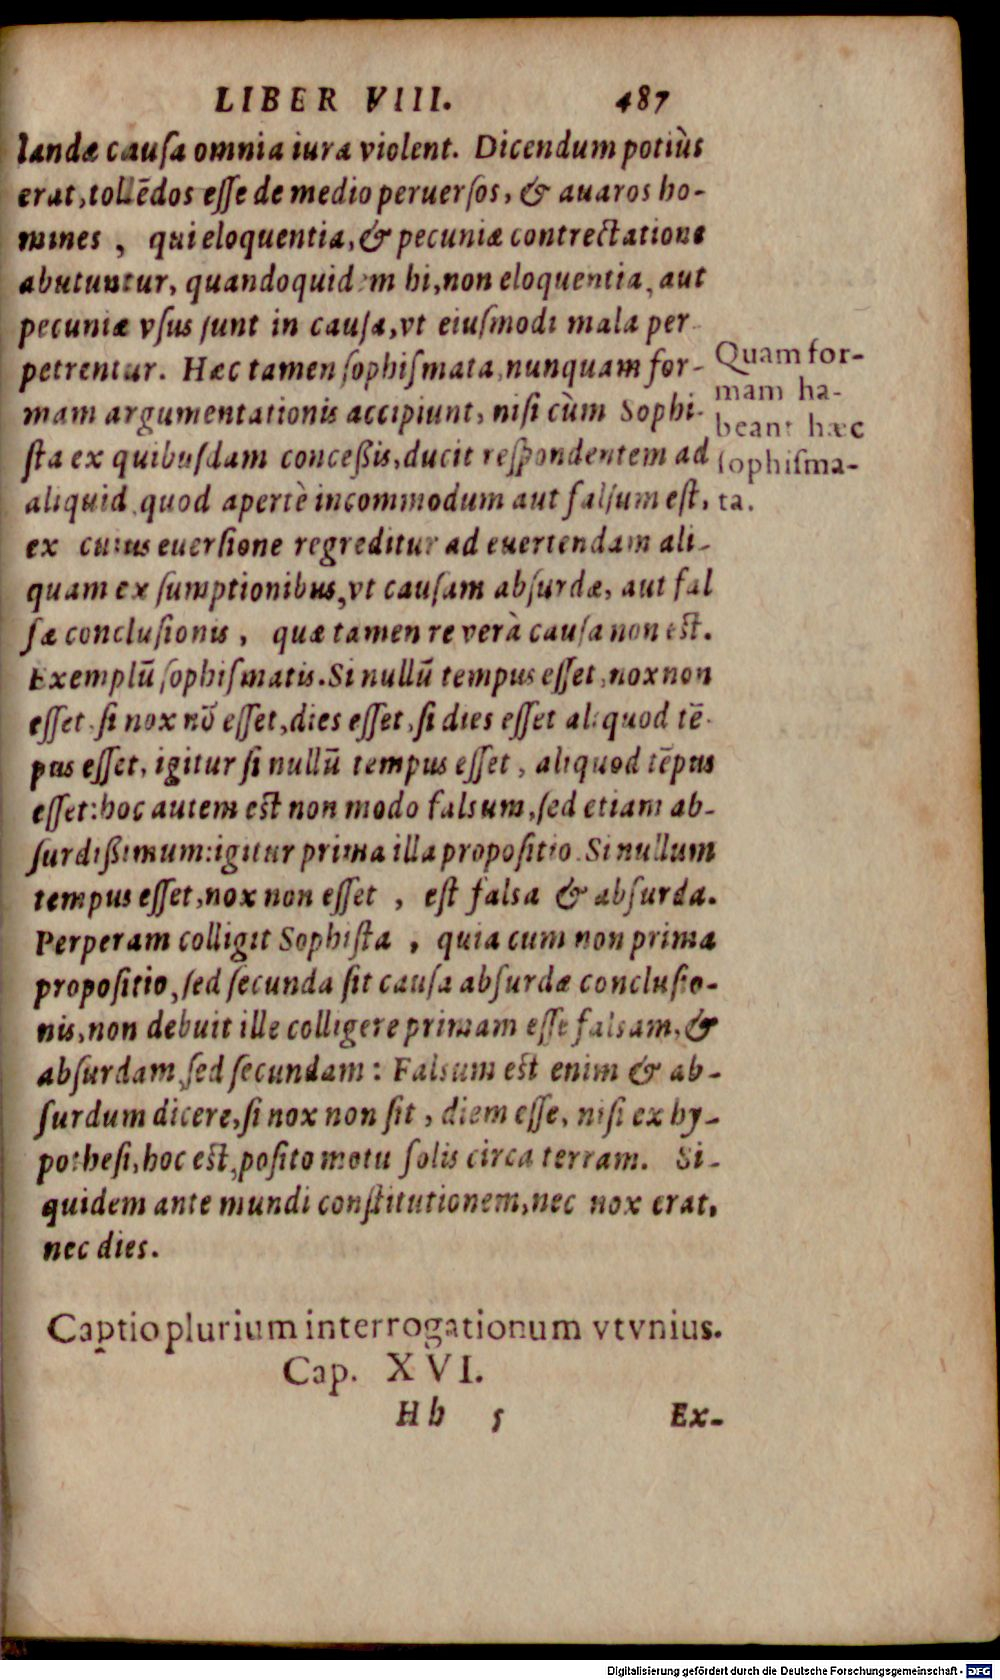 LIBER VIII. 487
landæ causa omnia iura violent. Dicendum potiùs
erat, tollēdos esse de medio peruersos, & auaros ho-
mines , qui eloquentia, & pecuniæ contrectatione
abutuntur, quandoquidem hi, non eloquentia, aut
pecuniæ vsus sunt in causa, vt eiusmodi mala per
petrentur. Hæc tamen sophismata, nunquam for-
mam argumentationis accipiunt, nisi cùm Sophi-
sta ex quibusdam conceßis, ducit respondentem ad
aliquid quod apertè incommodum aut falsum est,
ex cuius euersione regreditur ad euertendam ali-
quam ex sumptionibus, vt causam absurdæ, aut fal
sæ conclusionis , quæ tamen re verà causa non est.
Exemplū sophismatis. Si nullū tempus esset, nox non
esset, si nox nō esset, dies esset, si dies esset aliquod tē-
pus esset, igitur si nullū tempus esset, aliquod tēpus
esset: hoc autem est non modo falsum, sed etiam ab-
surdißimum: igitur prima illa propositio. Si nullum
tempus esset, nox non esset , est falsa & absurda.
Perperam colligit Sophista , quia cum non prima
propositio, sed secunda sit causa absurdæ conclusio-
nis, non debuit ille colligere primam esse falsam, &
absurdam, sed secundam : Falsum est enim & ab-
surdum dicere, si nox non sit , diem esse, nisi ex hy-
pothesi, hoc est, posito motu solis circa terram. Si-
quidem ante mundi constitutionem, nec nox erat,
nec dies.
Quam for-
mam ha-
beant hæc
sophisma-
ta.
Captio plurium interrogationum vt vnius.
Cap. XVI.
Hh 5 Ex-
Digitalisierung gefördert durch die Deutsche Forschungsgemeinschaft - DFG